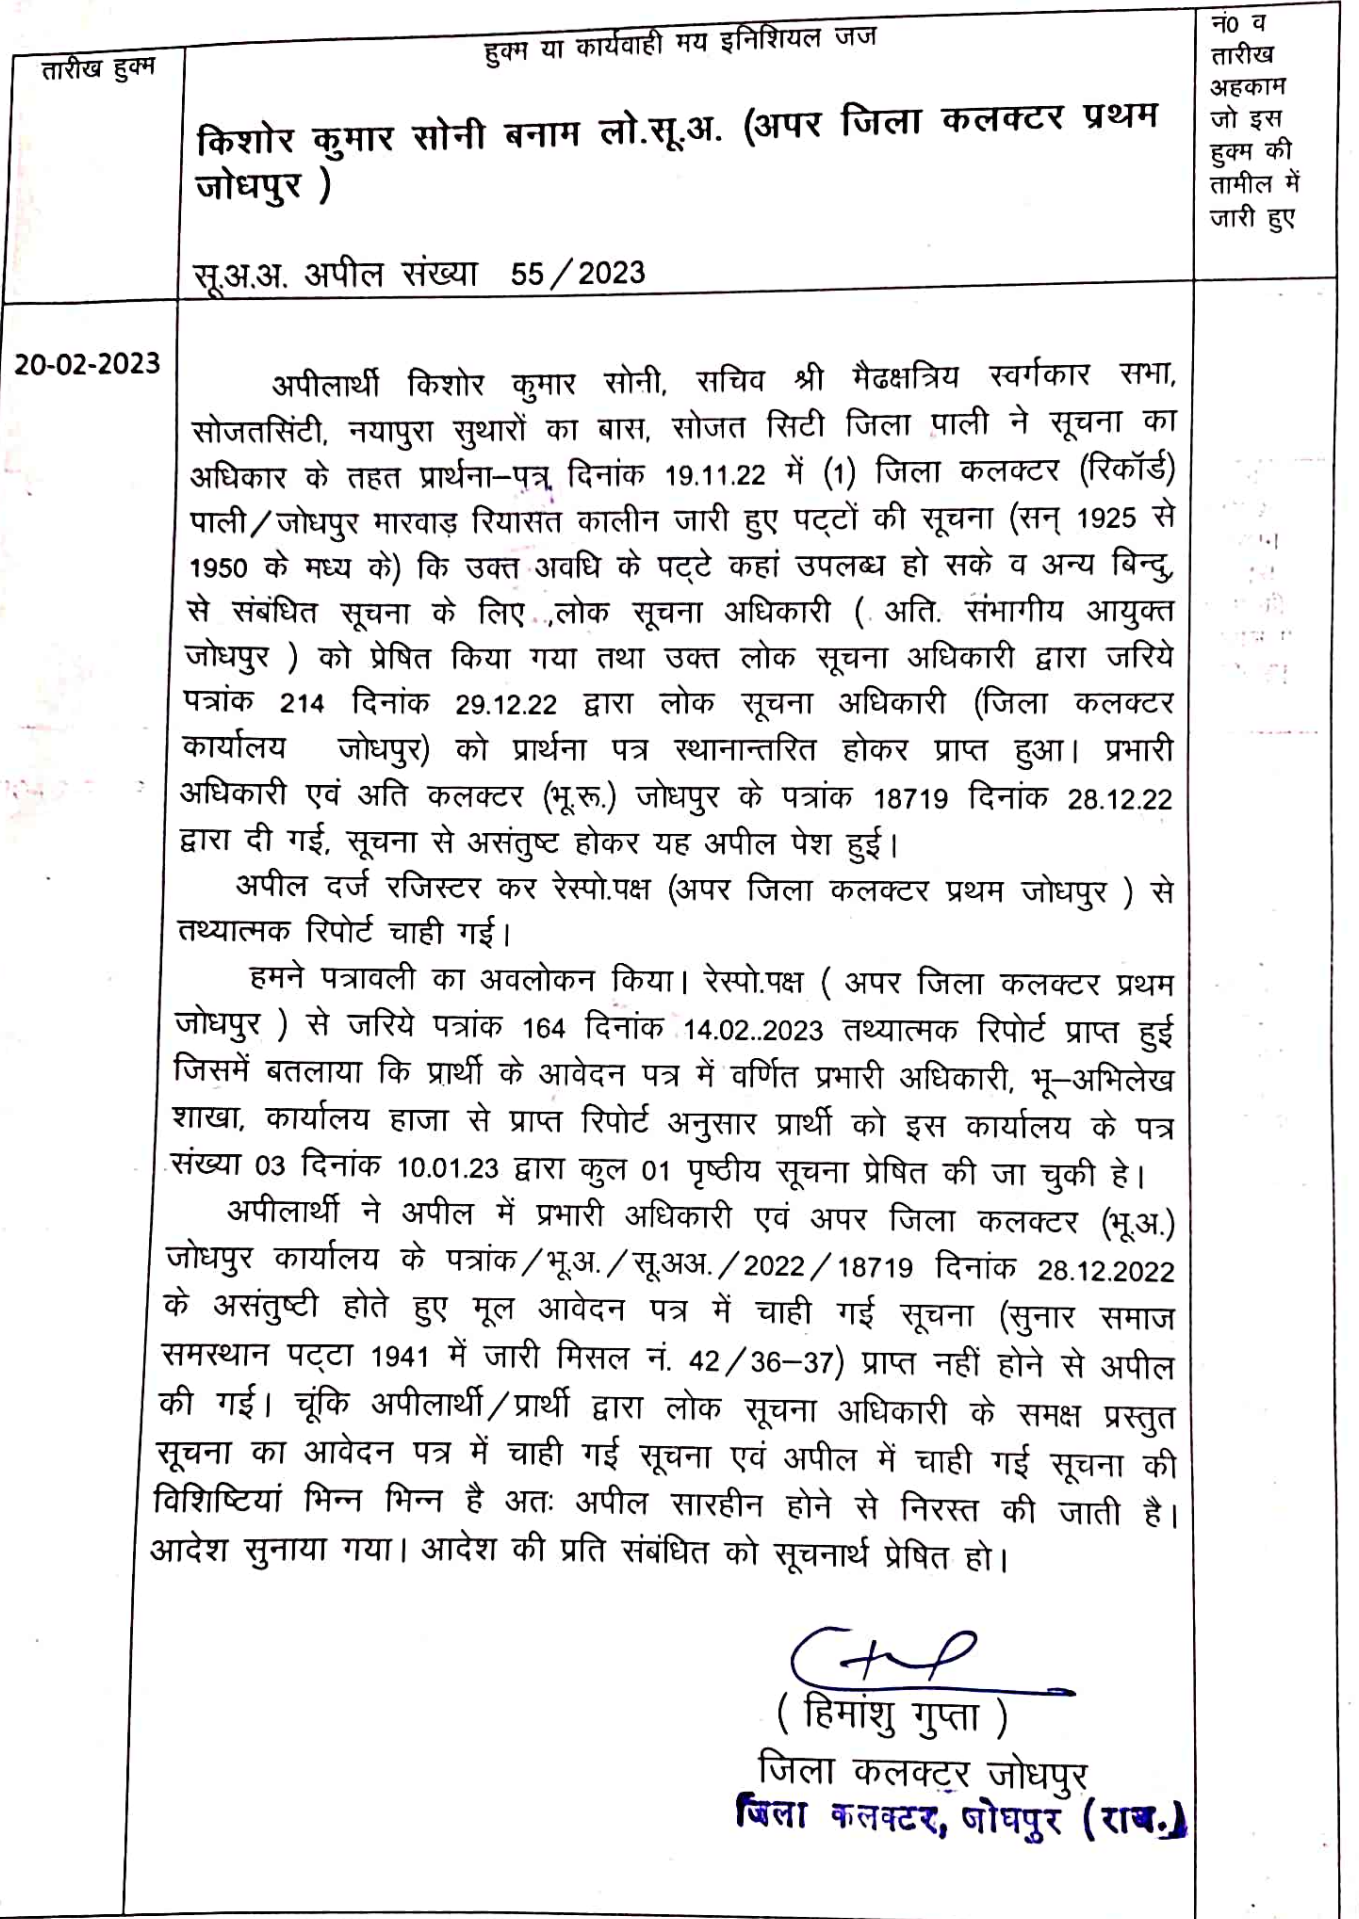 तारीख हुक्म
हुक्म या कार्यवाही मय इनिशियल जज
नं0 व
तारीख
अहकाम
जो इस
हुक्म की
तामील में
जारी हुए
किशोर कुमार सोनी बनाम लो.सू.अ. (अपर जिला कलक्टर प्रथम
जोधपुर )
सू.अ.अ. अपील संख्या 55/2023
20-02-2023
अपीलार्थी किशोर कुमार सोनी, सचिव श्री मैढक्षत्रिय स्वर्गकार सभा,
सोजतसिंटी, नयापुरा सुथारों का बास, सोजत सिटी जिला पाली ने सूचना का
अधिकार के तहत प्रार्थना–पत्र दिनांक 19.11.22 में (1) जिला कलक्टर (रिकॉर्ड)
पाली/जोधपुर मारवाड़ रियासत कालीन जारी हुए पट्टों की सूचना (सन् 1925 से
1950 के मध्य के) कि उक्त अवधि के पट्टे कहां उपलब्ध हो सके व अन्य बिन्दु,
से संबंधित सूचना के लिए ,लोक सूचना अधिकारी ( अति. संभागीय आयुक्त
जोधपुर ) को प्रेषित किया गया तथा उक्त लोक सूचना अधिकारी द्वारा जरिये
पत्रांक 214 दिनांक 29.12.22 द्वारा लोक सूचना अधिकारी (जिला कलक्टर
कार्यालय जोधपुर) को प्रार्थना पत्र स्थानान्तरित होकर प्राप्त हुआ। प्रभारी
अधिकारी एवं अति कलक्टर (भू.रू.) जोधपुर के पत्रांक 18719 दिनांक 28.12.22
द्वारा दी गई, सूचना से असंतुष्ट होकर यह अपील पेश हुई।
अपील दर्ज रजिस्टर कर रेस्पो.पक्ष (अपर जिला कलक्टर प्रथम जोधपुर ) से
तथ्यात्मक रिपोर्ट चाही गई।
हमने पत्रावली का अवलोकन किया। रेस्पो.पक्ष ( अपर जिला कलक्टर प्रथम
जोधपुर ) से जरिये पत्रांक 164 दिनांक 14.02..2023 तथ्यात्मक रिपोर्ट प्राप्त हुई
जिसमें बतलाया कि प्रार्थी के आवेदन पत्र में वर्णित प्रभारी अधिकारी, भू–अभिलेख
शाखा, कार्यालय हाजा से प्राप्त रिपोर्ट अनुसार प्रार्थी को इस कार्यालय के पत्र
संख्या 03 दिनांक 10.01.23 द्वारा कुल 01 पृष्ठीय सूचना प्रेषित की जा चुकी हे।
अपीलार्थी ने अपील में प्रभारी अधिकारी एवं अपर जिला कलक्टर (भू.अ.)
जोधपुर कार्यालय के पत्रांक/भू.अ./सू.अअ./2022/18719 दिनांक 28.12.2022
के असंतुष्टी होते हुए मूल आवेदन पत्र में चाही गई सूचना (सुनार समाज
समस्थान पट्टा 1941 में जारी मिसल नं. 42/36–37) प्राप्त नहीं होने से अपील
की गई। चूंकि अपीलार्थी/प्रार्थी द्वारा लोक सूचना अधिकारी के समक्ष प्रस्तुत
सूचना का आवेदन पत्र में चाही गई सूचना एवं अपील में चाही गई सूचना की
विशिष्टियां भिन्न भिन्न है अतः अपील सारहीन होने से निरस्त की जाती है।
आदेश सुनाया गया। आदेश की प्रति संबंधित को सूचनार्थ प्रेषित हो।
( हिमांशु गुप्ता )
जिला कलक्टर जोधपुर
जिला कलक्टर, जोधपुर (राज.)